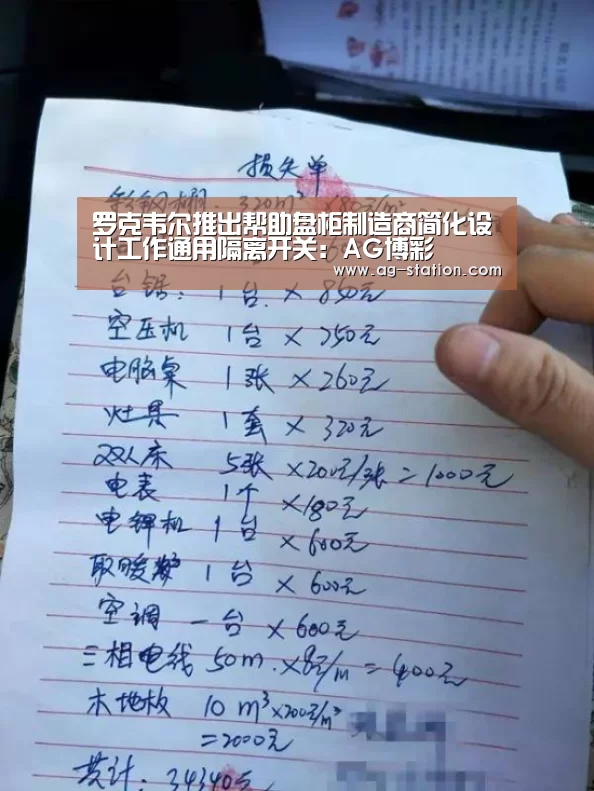 损失单
彩钢棚: 320m² ×80元/m²
罗克韦尔推出帮助盘柜制造商简化设
计工作通用隔离开关：AG博彩
www.ag-station.com
台锯: 1台 × 850元
空压机 1台 × 350元
电脑桌 1张 × 260元
灶具 1套 × 320元
双人床 5张 ×200元/张 = 1000元
电表 1个 ×180元
电焊机 1台 ×600元
取暖炉 1台 ×600元
空调 一台 ×600元
三相电线 50m ×8元/m = 400元
木地板 10m³×200元/m³
=2000元
共计: 34340元